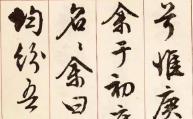 兮惟庚
余于初度
名〻余曰
均紛吾